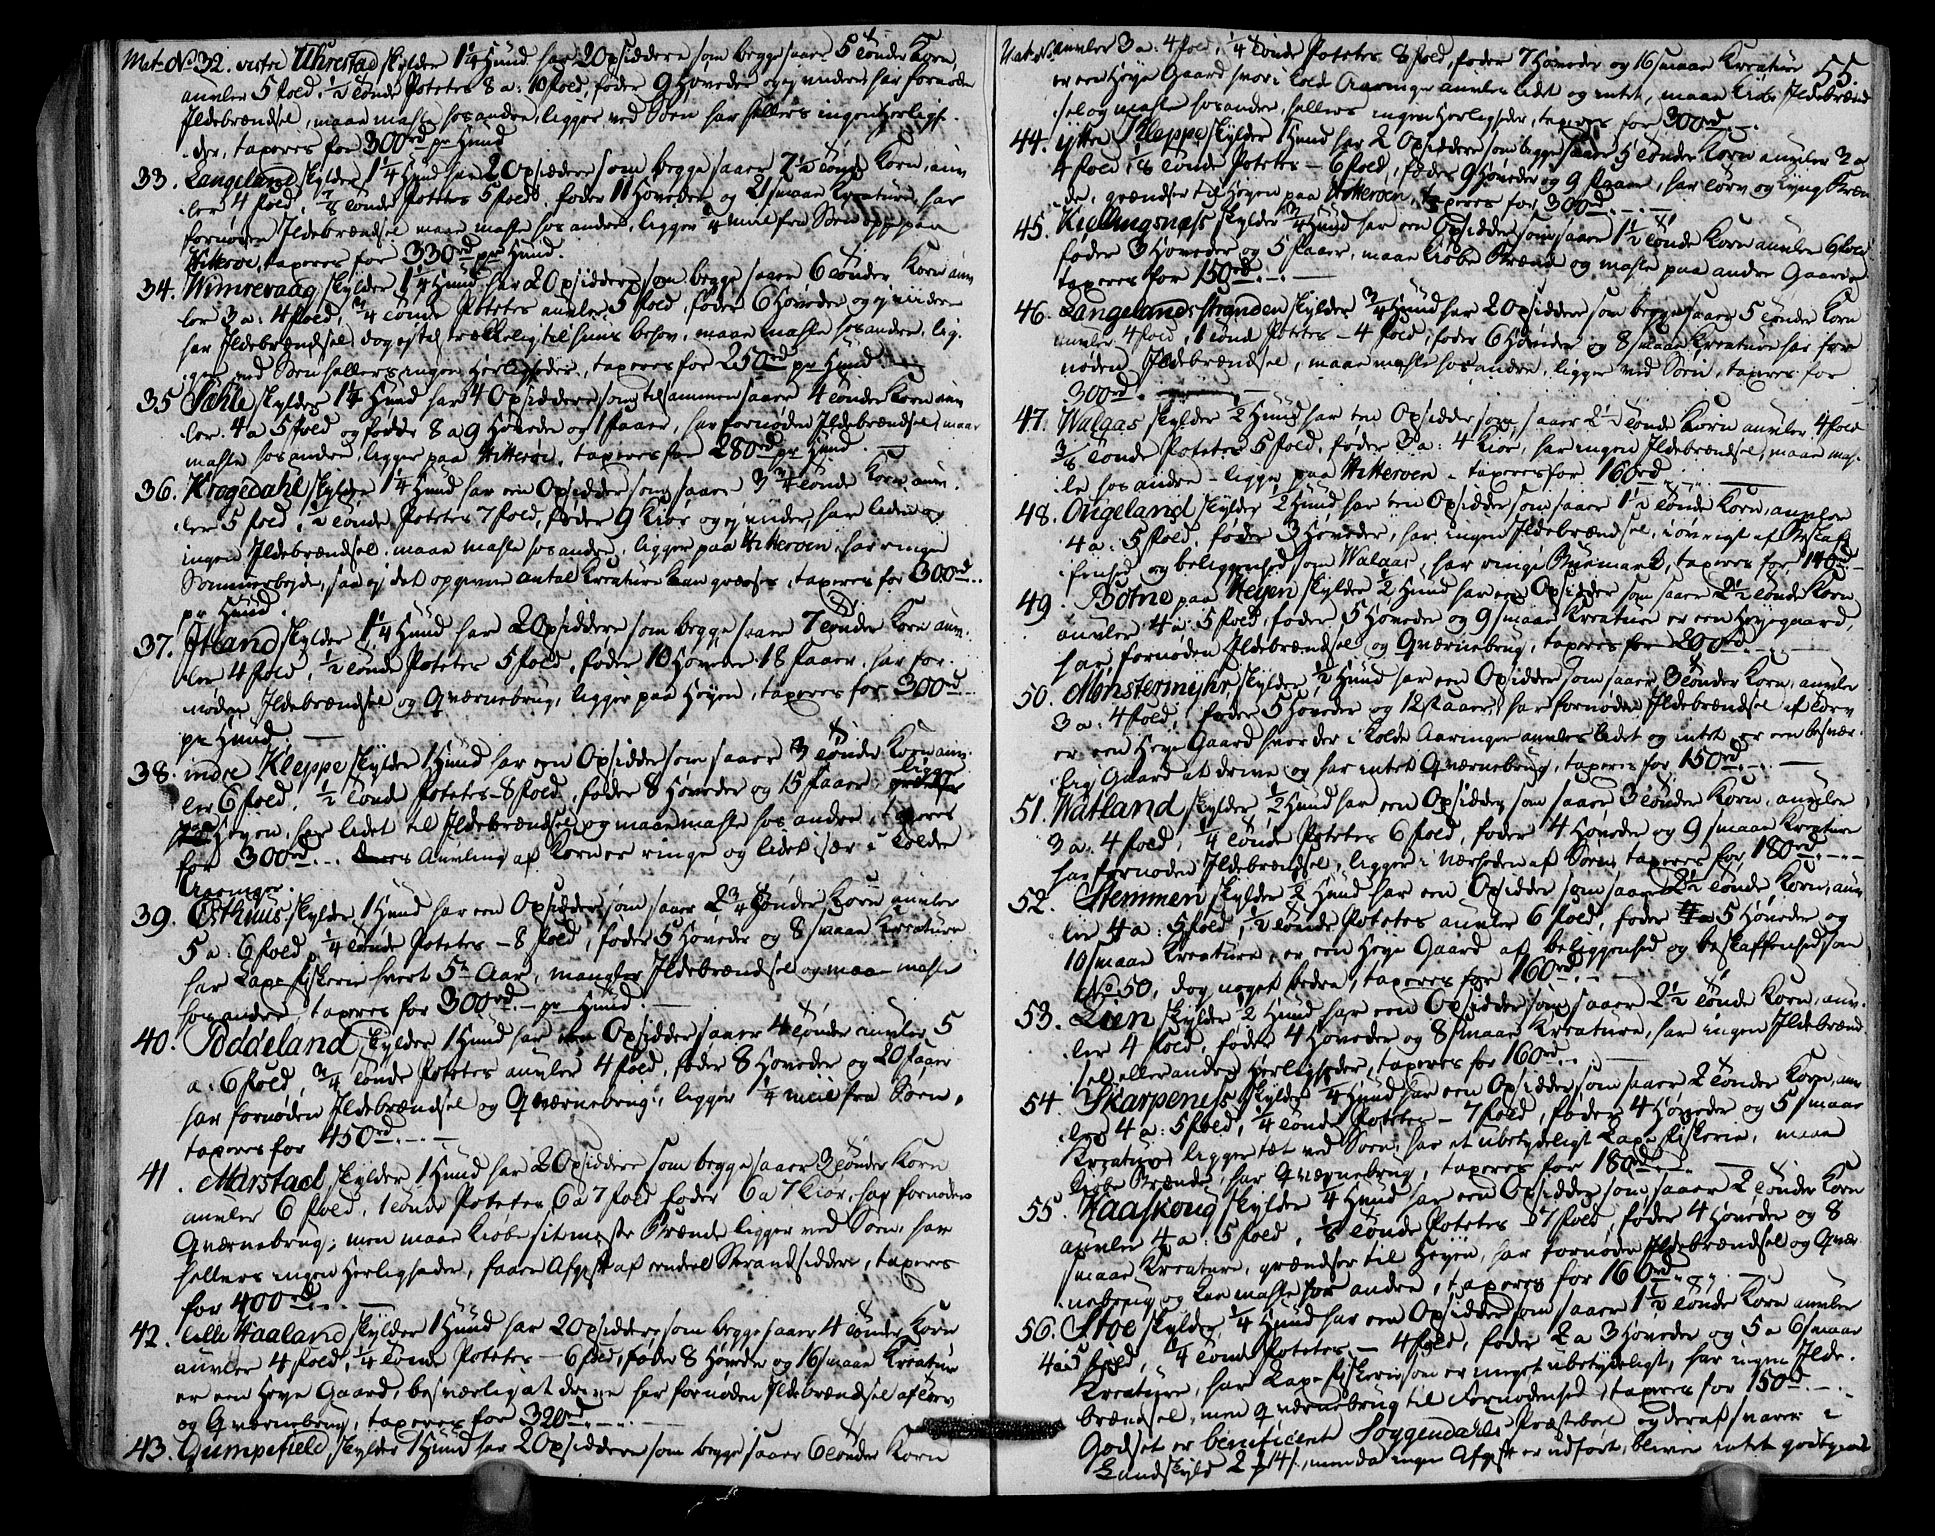 Mat: No 32. vestre Uhrestad skylder 1¼ Hund har 2 Opsiddere som begge saaer 5 tønder Korn,
auvler 5 fold, ½ tønde Potetes 8 a: 10 fold, føder 9 Høveder og ej videre, har fornøden
Ildebrændsel, maae maste hos andre, ligger ved Søen har hellers ingen Herlighe-
der, taxeres for 300rd pr Hund
33. Langeland skylder 1¼ Hund har 2 Opsiddere som begge saaer 7½ tønde Korn, auv
ler 4 fold, ⅛ tønde Potetes 5 fold, føder 11 Høveder og 21 smaae Kreature, har
fornøden Ildebrændsel maae maste hos andre, ligger ¼ Miil fra Søen oppe paa
Hitterøe, taxeres for 330rd pr Hund.
34. Wimrevaag skylder 1¼ Hund har 2 Opsiddere som begge saaer 6 tønder Korn auv
ler 3 a: 4 fold, ¾ tønde Potetes auvler 5 fold, føder 6 Høveder og ej videre
har Ildebrændsel, dog ej tilstrækkelig til huus behov, maae maste hos andre, lig-
ger ved Søen hellers ingen Herligheder, taxeres for 250rd pr Hund
35 Sæhle skylder 1¼ Hund har 4 Opsiddere som tilsammen saaer 4 tønder Korn auv
ler 4 a 5 fold og fødde 8 a 9 Høveder og 1 faaer, har fornøden Ildebrændsel, maae
maste hos andre, ligger paa Hitterøe, taxeres for 280rd pr Hund.
36. Kragedahl skylder 1¼ Hund har een Opsidder som saaer 3¾ tønde Korn auv-
ler 5 fold, ½ tønde Potetes 7 fold, føder 9 Kiør og ej videre, har liden og
ingen Ildebrændsel, maae maste hos andre, ligger paa Hitterøen, har ringe
Sommerbejde, saa ej det opgivne antal Kreature kan græsses, taxeres for 300rd
pr Hund.
37. Øtland skylder 1¼ Hund har 2 Opsiddere som begge saaer 7 tønder Korn auv-
ler 4 fold, ½ tønde Potetes 5 fold, føder 10 Høveder 18 faaer, har for-
nøden Ildebrændsel og Qværnebrug, ligger paa Heyen, taxeres for 300rd
pr Hund.
38. indre Kleppe skylder 1 Hund har een Opsidder som saaer 3 tønder Korn auv-
ler 6 fold, ½ tønde Potetes 8 fold, føder 8 Høveder og 15 faaer, ligger
paa Heyen, har lidet til Ildebrændsel og maae maste hos andre, taxeres
for 300rd. deres Auvling af Korn er ringe og lidet især i kolde
Aaringer.
39. Østhuus skylder 1 Hund har een Opsidder som saaer 2¾ tønder Korn auvler
5 a: 6 fold, ¼ tønde Potetes 8 fold, føder 5 Høveder og 8 smaae Kreature
har Laxe fiskerie hvert 5te Aar, mangler Ildebrændsel og maae maste
hos andre, taxeres for 300rd pr Hund.
40. Poddeland skylder 1 Hund har een Opsidder saaer 4 tønder auvler 5
a: 6 fold, ¾ tønde Potetes auvler 4 fold, føder 8 Høveder og 20 faaer
har fornøden Ildebrændsel og Qværnebrug, ligger ¼ Miil fra Søen,
taxeres for 450rd.
41. Marstad skylder 1 Hund har 2 Opsiddere som begge saaer 3 tønder Korn
auvler 6 fold, 1 tønde Potetes 6 a 7 fold føder 6 a 7 Kiør, har fornøden
Qværnebrug; men maae kiøbe sit meste Brænde ligger ved Søen, har
hellers ingen Herligheder, faaer Afgift af endeel Strandsiddere, taxeres
for 400rd.
42. lille Haaland skylder 1 Hund har 2 Opsiddere som begge saaer 4 tønder Korn
auvler 4 fold, ¼ tønde Potetes 6 fold, føder 8 Høveder og 16 smaae Kreature
er een Heye Gaard, besværlig at drive har fornøden Ildebrændsel af Torv
og Qværnebrug, taxeres for 320rd.
43. Gumpefield skylder 1 Hund har 2 Opsiddere som begge saaer 6 tønder Korn
55.
Mat: No auvler 3 a: 4 fold, ¼ tønde Potetes 8 fold, føder 7 Høveder og 16 smaae Kreature
er een Heye Gaard hvor i kold Aaringer auvles lidet og intet, maae kiøbe Ildebrænd
sel og maste hos andre, hellers ingen Herligheder, taxeres for 300rd.
44. ÿttre Kleppe skylder 1 Hund har 2 Opsiddere som begge saaer 5 tønder Korn auvler 3 a
4 fold, ⅛ tønde Potetes 6 fold, føder 9 Høveder og 9 faaer, har Torv og Lyng Bræn
de, grændser til Heyen paa Hitterøen, taxeres for 300rd.
45. Kiellingsnæss skylder ¾ Hund har een Opsidder som saaer 1½ tønde Korn auvler 6 fold
føder 3 Høveder og 5 faaer, maae kiøbe Brænde og maste paa andre Gaarde
taxeres for 150rd.
46. Langelandsstranden skylder ¾ Hund har 2 Opsiddere som begge saaer 5 tønder Korn
auvler 4 fold, 1 tønde Potetes 4 fold, føder 6 Høveder og 8 smaae Kreature har for
nøden Ildebrændsel, maae maste hos andre, ligger ved Søen, taxeres for
300rd.
47. Walaas skylder ½ Hund har een Opsidder som saaer 2½ tønde Korn auvler 4 fold
⅜ tønde Potetes 5 fold, føder 3 a: 4 Kiør, har ingen Ildebrændsel, maae mas-
te hos andre ligger paa Hitterøen taxeres for 160rd.
48. Ougeland skylder ½ Hund har een Opsidder som saaer 1½ tønde Korn, auvler
4 a: 5 fold, føder 3 Høveder, har ingen Ildebrændsel, i øvrigt af Beskaf
fenhed og beliggenhed som Walaas, har ringe Buemark, taxeres for 140rd
49. Botne paa Heyen skylder ½ Hund har een Opsidder som saaer 2½ tønde Korn
auvler 4 a: 5 fold, føder 5 Høveder og 9 smaae Kreature er een Heyegaard,
har fornøden Ildebrændsel og Qværnebrug, taxeres for 200rd.
50. Mønstermÿhr skylder ½ Hund har een Opsidder som saaer 3 tønder Korn, auvler
3 a: 4 fold, føder 5 Høveder og 12 faaer, har fornøden Ildebrændsel af Torv
er een Heye Gaard hvor der i kolde Aaringer auvles lidet og intet er een besvær-
lig Gaard at drive og har intet Qværnebrug, taxeres for 150rd.
51. Watland skylder ½ Hund har een Opsidder som saaer 3 tønder Korn, auvler
3 a: 4 fold, ¼ tønde Potetes 6 fold, føder 4 Høveder og 9 smaae Kreature
har fornøden Ildebrændsel, ligger i Nærheden af Søen, taxeres for 180rd.
52. Stemmen skylder ½ Hund har een Opsidder som saaer 2½ tønde Korn, auv
ler 4 a: 5 fold, ½ tønde Potetes auvler 6 fold, føder 5 Høveder og
10 smaae Kreature, er een Heye Gaard af beliggenhed og beskaffenhed som
No 50, dog noget bedre, taxeres for 160rd.
53. Lien skylder ½ Hund har een Opsidder som saaer 2½ tønde Korn, auv-
ler 4 fold, føder 4 Høveder og 8 smaae Kreature, har ingen Ildebrænd
sel eller andre Herligheder, taxeres for 160rd.
54. Skarpeniss skylder ¼ Hund har een Opsidder som saaer 2 tønder Korn, auv
ler 4 a: 5 fold, ¼ tønde Potetes 7 fold, føder 4 Høveder og 5 smaae
Kreature ligger tæt ved Søen, har et ubetydeligt Laxe fiskerie, maae
kiøbe Brænde, har Qværnebrug, taxeres for 180rd.
55. Haaskoug skylder ¼ Hund har een Opsidder som saaer 2 tønder Korn
auvler 4 a: 5 fold, ⅛ tønde Potetes 7 fold, føder 4 Høveder og 8
smaae Kreature, grændser til Heyen, har fornøden Ildebrændsel og Qvær-
nebrug og kan maste for andre, taxeres for 160rd 8
56. Stoe skylder ¼ Hund har een Opsidder som saaer 1½ tønde Korn auvler
4 a 5 fold, ¼ tønde Potetes 4 fold, føder 2 a 3 Høveder og 5 a 6 smaae
Kreature, har Laxe fiskerie som er meget ubetydeligt, har ingen Ilde-
brændsel, men Qværnebrug til Fornødenhed, taxeres for 150rd.
Godset er beneficeret Soggendahls Præstebol og deraf svares i
Landskyld 2 14 s, men da ingen Afgift er udført, bliver intet godtgiort